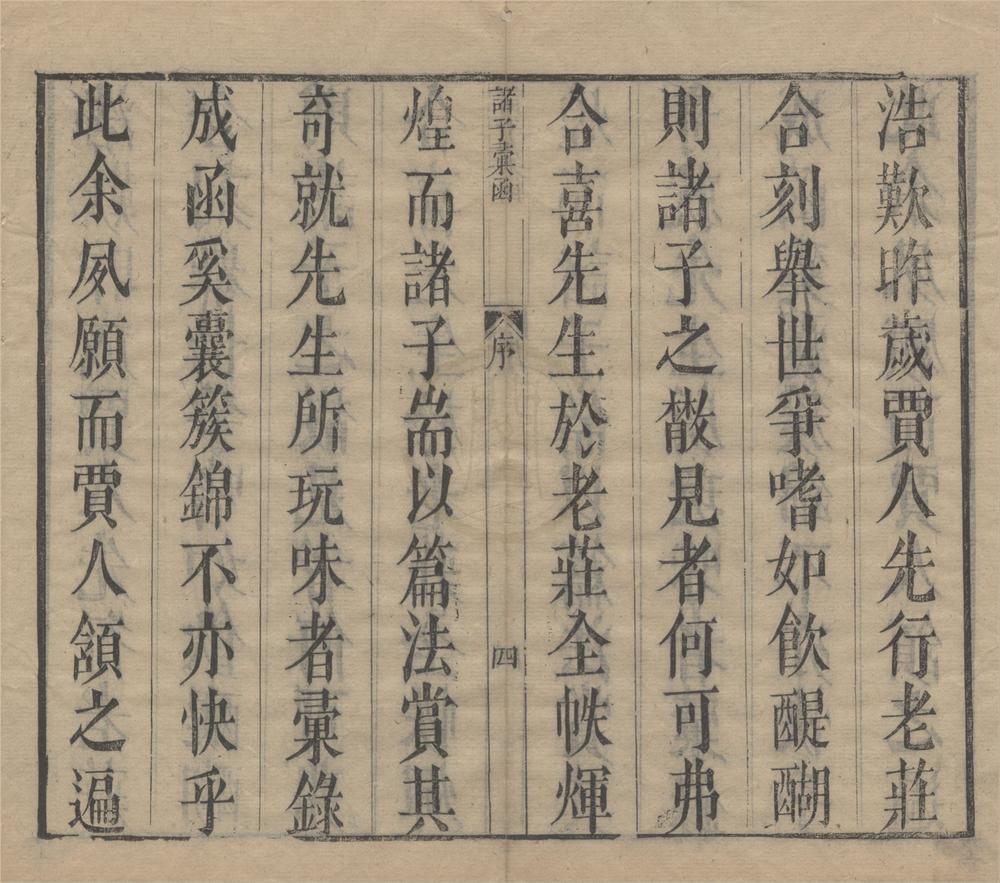 浩歎昨歲賈人先行老莊
合刻舉世爭嗜如飲醍醐
則諸子之散見者何可弗
合喜先生於老莊全帙煇
諸子彙函
序
四
煌而諸子耑以篇法賞其
奇就先生所玩味者彚錄
成函奚囊簇錦不亦快乎
此余夙願而賈人頷之遍